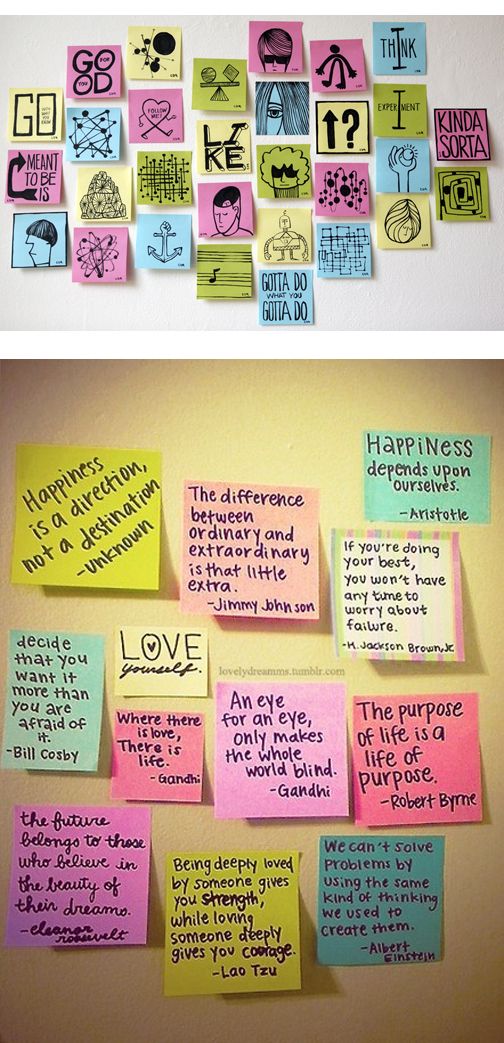 GO
FOR
YOU
OD
THINK
GO
FOLLOW
ME!
LI
KE
↑?
EXPERIMENT
KINDA
SORTA
MEANT
TO BE
IS
GOTTA DO
WHAT YOU
GOTTA DO.
Happiness
is a direction,
not a destination
-unknown
The difference
between
ordinary and
extraordinary
is that little
extra.
-Jimmy Johnson
HAPPINESS
depends upon
ourselves.
-Aristotle
If you're doing
your best,
you won't have
any time to
worry about
failure.
-H. Jackson Brown, Jr.
decide
that you
want it
more than
you are
afraid of
it.
-Bill Cosby
LOVE
yourself.
lovelydreamms.tumblr.com
Where there
is love,
There is
life.
-Gandhi
An eye
for an eye,
only makes
the whole
world blind.
-Gandhi
The purpose
of life is a
life of
purpose.
-Robert Byrne
the future
belongs to those
who believe in
the beauty of
their dreams.
-eleanor
roosevelt
Being deeply loved
by someone gives
you strength,
while loving
someone deeply
gives you courage.
-Lao Tzu
We can't solve
problems by
using the same
kind of thinking
we used to
create them.
-Albert
Einstein